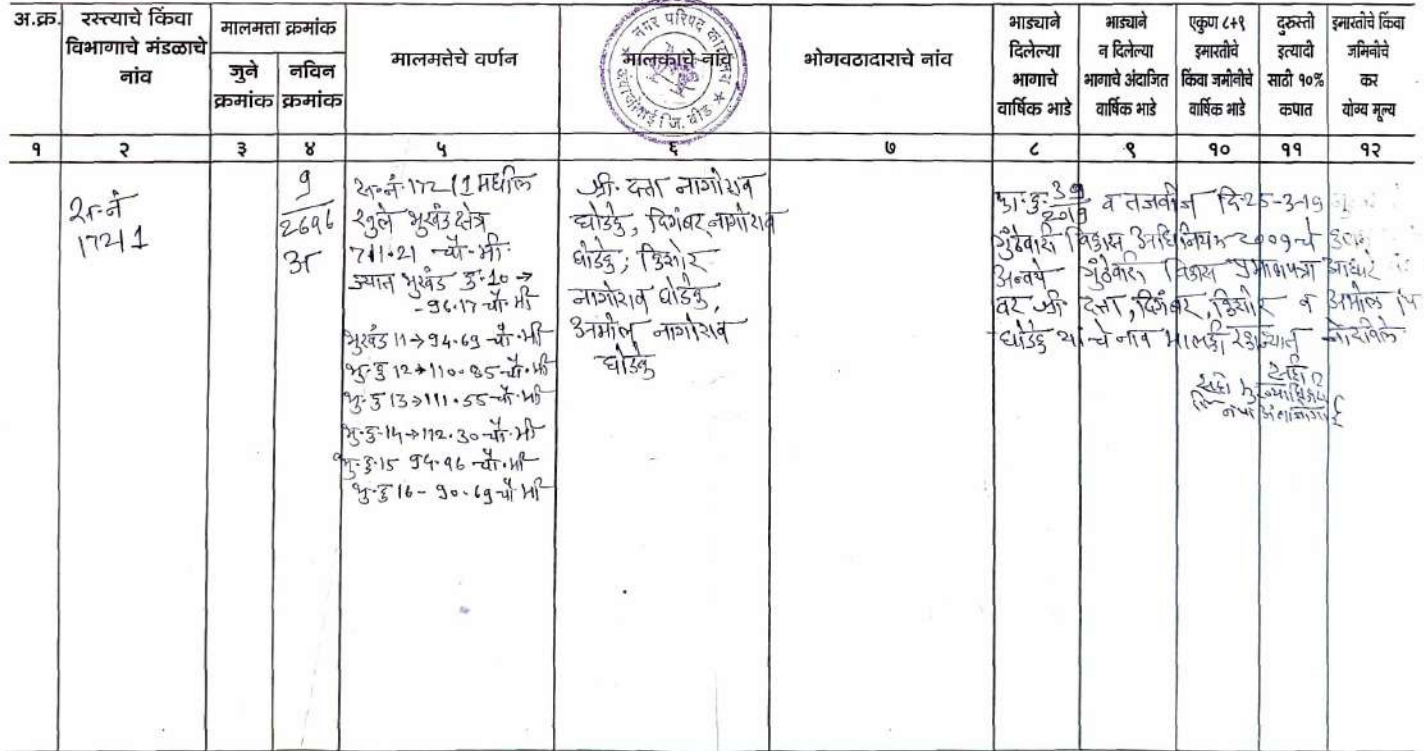 अ.क्र.
रस्त्याचे किंवा
विभागाचे मंडळाचे
नांव
मालमत्ता क्रमांक
जुने
क्रमांक
नविन
क्रमांक
मालमत्तेचे वर्णन
मालकाचे नांव
नगर परिषद कार्यालय
अंबाजोगाई जि. बीड
भोगवठादाराचे नांव
भाड्याने
दिलेल्या
भागाचे
वार्षिक भाडे
भाड्याने
न दिलेल्या
भागाचे अंदाजित
वार्षिक भाडे
एकुण ८+९
इमारतीचे
किंवा जमीनीचे
वार्षिक भाडे
दुरुस्ती
इत्यादी
साठी १०%
कपात
इमारतीचे किंवा
जमिनीचे
कर
योग्य मूल्य
१ २ ३ ४ ५ ६ ७ ८ ९ १० ११ १२
स.नं
172/1
9
2696
अ
स.नं.172/1 मधील
खुले भुखंड क्षेत्र
711.21 चौ.मी.
ज्यात भुखंड क्र.10 →
96.17 चौ.मी
भुखंड 11→94.69 चौ.मी
भु.क्र 12→110.85 चौ.मी
भु.क्र 13→111.55 चौ.मी
भु.क्र.14→112.30 चौ.मी
भु.क्र.15 94.96 चौ.मी
भु.क्र 16- 90.69 चौ मी
श्री. दत्ता नागोराव
घोडके, दिगंबर नागोराव
घोडके, किशोर
नागोराव घोडके,
अमोल नागोराव
घोडके
39
2019 व तजवीज दि.25-3-19
गुंठेवारी विकास अधिनियम 2001 चे
अन्वये गुंठेवारी विकास प्रमाणपत्रा आधारे
वर श्री दत्ता, दिगंबर, किशोर व अमोल
घोडके यांचे नाव मालकी रकान्यात नोंदविले
सही
सही मुख्याधिकारी
नप अंबाजोगाई